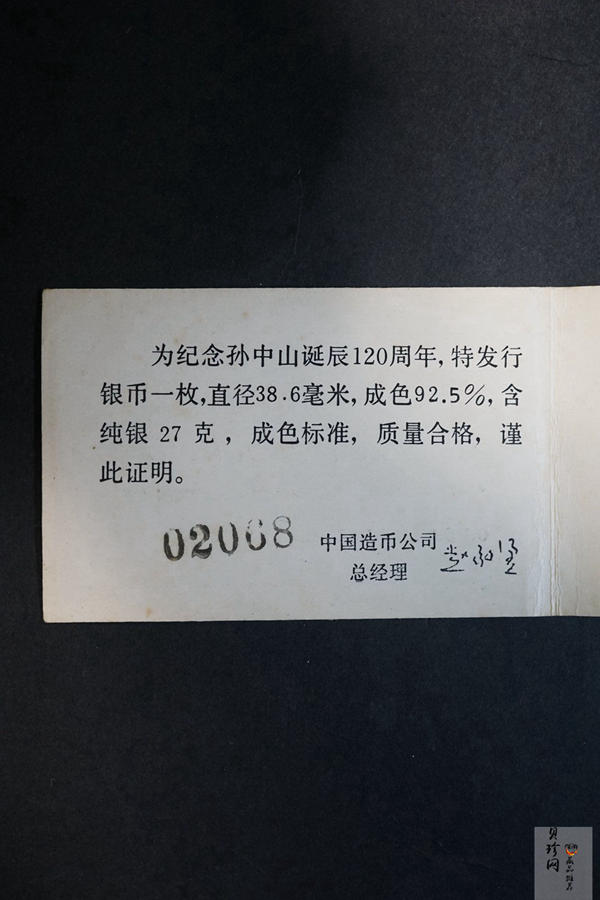 为纪念孙中山诞辰120周年,特发行
银币一枚,直径38.6毫米,成色92.5%,含
纯银 27 克，成色标准，质量合格，谨
此证明。
02068
中国造币公司
总经理
贝珍网
藏品推荐